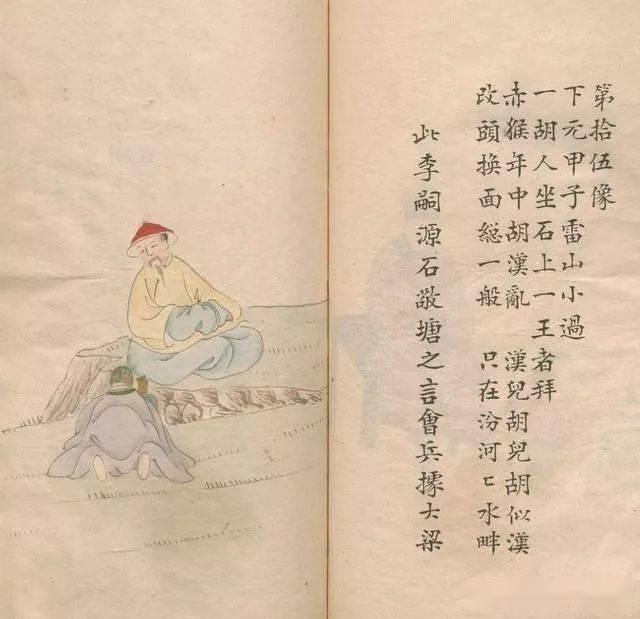 第拾伍像
下元甲子雷山小過
一胡人坐石上一王者拜
赤猴年中胡漢亂　漢兒胡兒胡似漢
改頭換面緫一般　只在汾河匕水畔
此李嗣源石敬塘之言會兵據大梁